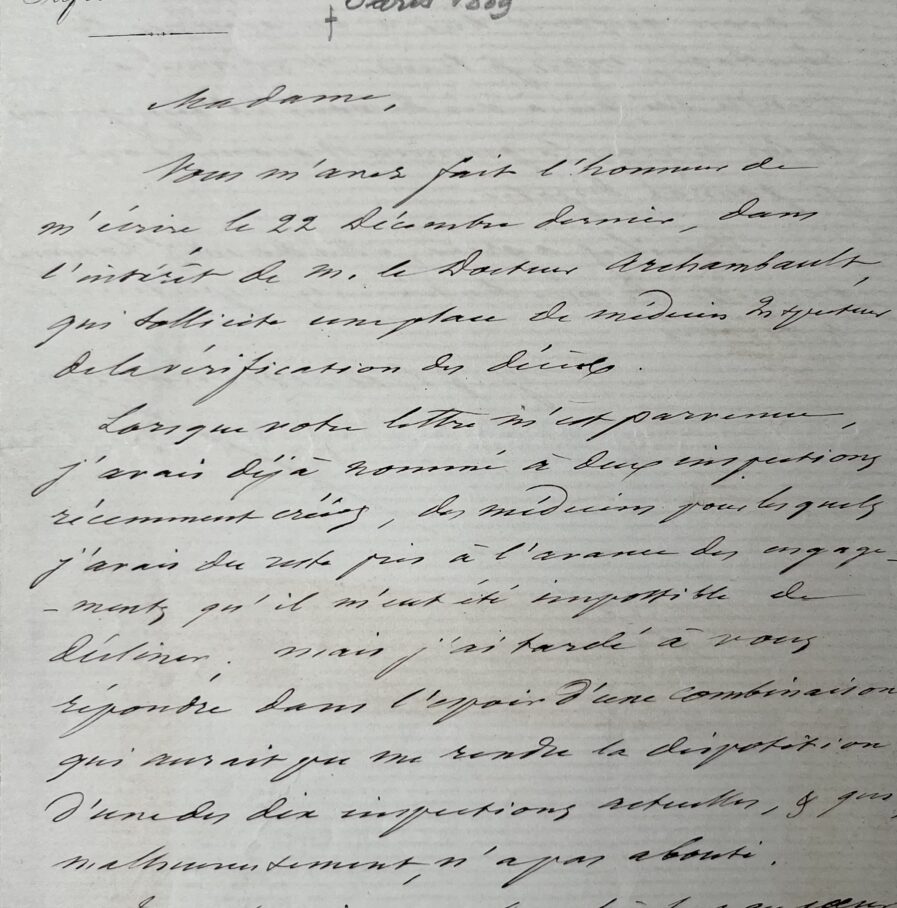 † Paris 1889
Madame,
Vous m'avez fait l'honneur de
m'écrire, le 22 Décembre dernier, dans
l'intérêt de M. le Docteur Archambault,
qui sollicite une place de médecin Inspecteur
de la vérification des décès.
Lorsque votre lettre m'est parvenue,
j'avais déjà nommé à deux inspections
récemment créées, des médecins pour lesquels
j'avais du reste pris à l'avance des engage-
-ments qu'il m'eut été impossible de
décliner. mais j'ai tardé à vous
répondre dans l'espoir d'une combinaison
qui aurait pu me rendre la disposition
d'une des dix inspections actuelles, & qui,
malheureusement, n'a pas abouti.